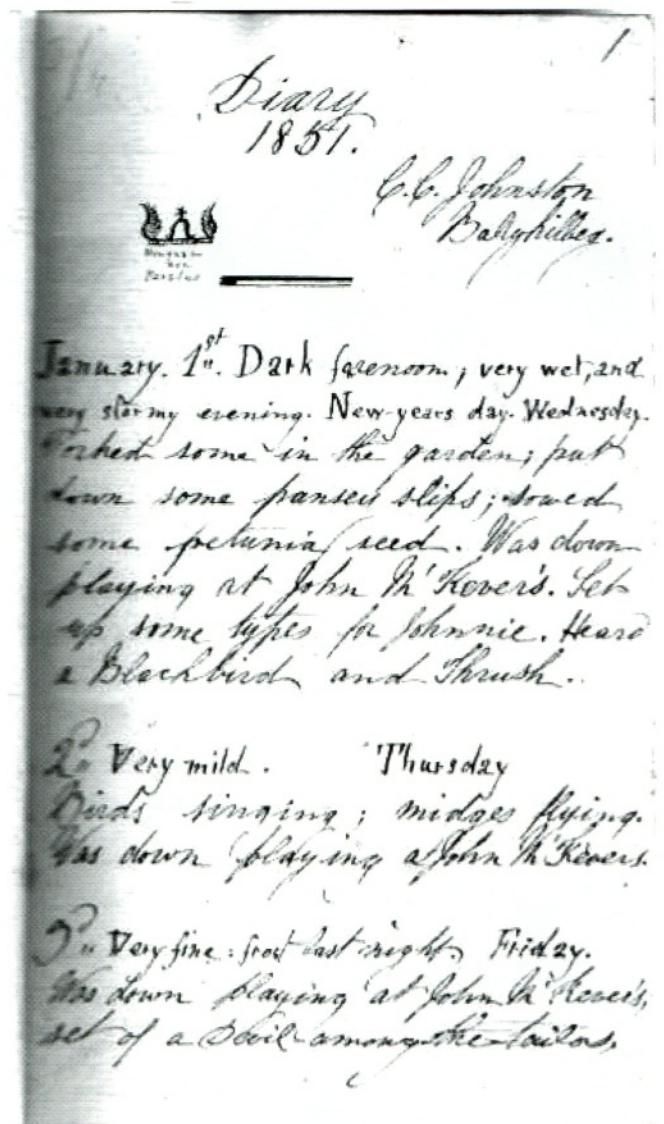 1
Diary
1851.
C.C. Johnston
Ballykilbeg.
January. 1st. Dark forenoon; very wet, and
very stormy evening. New-years day. Wednesday.
Forked some in the garden; put
down some pansey slips; sowed
some petunia seed. Was down
playing at John McKever's. Set
up some types for Johnnie. Heard
a Blackbird and Thrush.
2d Very mild. Thursday
Birds singing; midges flying.
Was down playing a John McKevers.
3d Very fine: frost last night. Friday.
Was down playing at John McKever's,
set of a Devil-among-the-tailors.